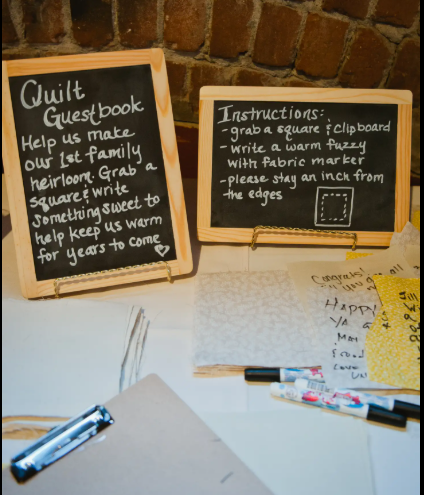 Quilt
Guestbook
Help us make
our 1st family
heirloom. Grab a
square & write
something sweet to
help keep us warm
for years to come
Instructions:
- grab a square & clipboard
- write a warm fuzzy
with fabric marker
- please stay an inch from
the edges
Congrats!
all
HAPPY